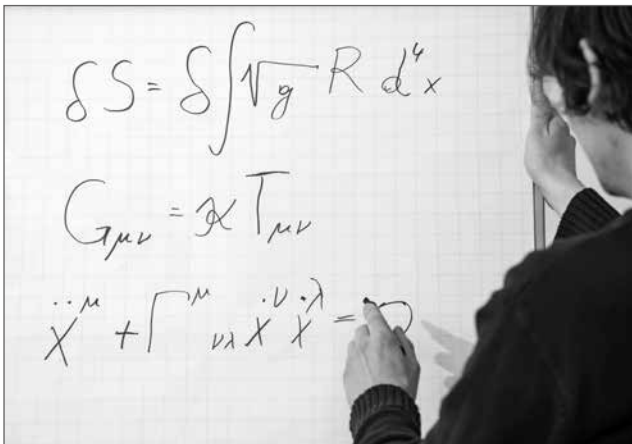 δS = δ∫√g R d⁴x
G_μν = ϰ T_μν
ẍ^μ + Γ^μ_νλ ẋ^ν ẋ^λ = 0